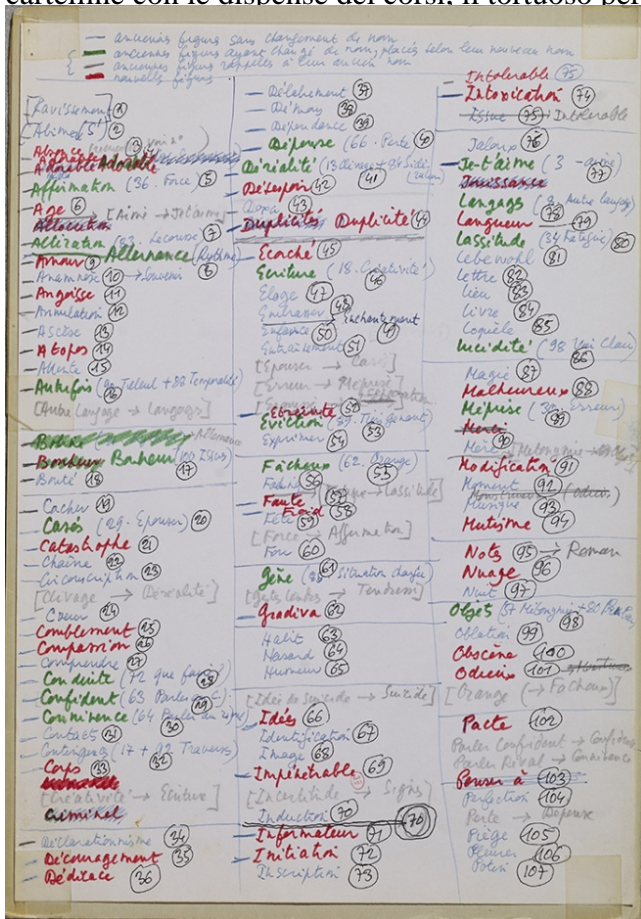 cartelline con le dispense dei corsi, il tortuoso per
— anciennes figures sans changement de nom
— anciennes figures ayant changé de nom, placées selon leur nouveau nom
{ — anciennes figures rappelées à leur ancien nom
— nouvelles figures
[Ravissement] 1
[Abîmé (s')] 2
Absence 3
Adorable
Affirmation (36. Force) 5
Age 6
Allocution [Aimé → Je t'aime]
Altération (53. Lacoure) 7
Alternance (Rythme) 8
Amour 9
Anamnèse 10 → Souvenir
Angoisse 11
Annulation 12
Ascèse 13
Atopos 14
Attente 15
Autrefois 16
[Autre langage → langages]
Alternance
Bonheur 17
Bonté 18
— Cacher 19
Casés (29. Epouser) 20
— Catastrophe 21
— Chaîne 22
— Circonscription 23
[Clivage → Déréalité]
— Cœur 24
— Comblement 25
— Compassion 26
— Comprendre 27
— Conduite (72 que faire) 28
— Confident (63 Parler) 29
— Connivence (64 Parler) 30
— Contacts 31
— Contingences (17 + 92 Travers) 32
— Corps 33
[Créativité → Ecriture]
Criminel
— Déclarationnisme 34
— Découragement 35
— Dédicace 36
— Délabrement 37
— Démons 38
— Dépendance 39
— Dépense (66. Perte) 40
Déréalité 41
— Désespoir 42
— Doxa 43
— Duplicités Duplicité 44
— Ecorché 45
Ecriture (18. Créativité) 46
Eloge 47
Embrasser 48
Enchantement 49
Enfance 50
Entraînement 51
[Epouser → Casé]
[Erreur → Méprise]
— Etreinte 52
Eviction 53
Exprimer 54
Fâcheux (62. Orange) 55
Fading 56
— Faute
— Froid 58
Fête 59
[Force → Affirmation]
Fou 60
Gêne (Situation) 61
[→ Tendresse]
— Gradiva 62
Habit 63
Hasard 64
Humeur 65
[Idée de Suicide → Suicide]
— Idées 66
Identification 67
Image 68
— Impénétrable 69
[Incertitude → Signes]
Induction 70 70
— Informateur 71
— Initiation 72
Inscription 73
— Intolérable 75
— Intoxication 74
Issue 75 Intolérable
Jaloux 76
— Je-t-aime 77
Jouissance
Langages (8. Autre langage) 78
Langueur 79
Lassitude (34 Fatigue) 80
Lebewohl 81
Lettre 82
Lieu 83
Livre 84
Loquèle 85
Lucidité (98 Voir Clair) 86
Magie 87
Malheureux 88
Méprise (30. Erreur) 89
Merci
Mère 90
Modification 91
Moment 92
Monstrueux (odieux)
Musique 93
Mutisme 94
Nots 95 → Roman
Nuage 96
Nuit 97
Objet 98
Oblation 99
Obscène 100
Odieux 101
[Orange (→ Fâcheux)]
Pacte 102
Parler Confident → Confident
Parler Rival → Connivence
Penser à 103
Perfection 104
Perte → Dépense
Piège 105
Pleurer 106
Potin 107